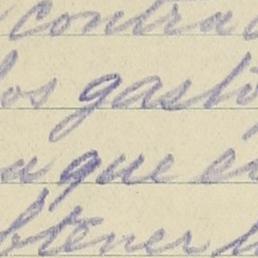 contra
los gasto
a que e
btener l